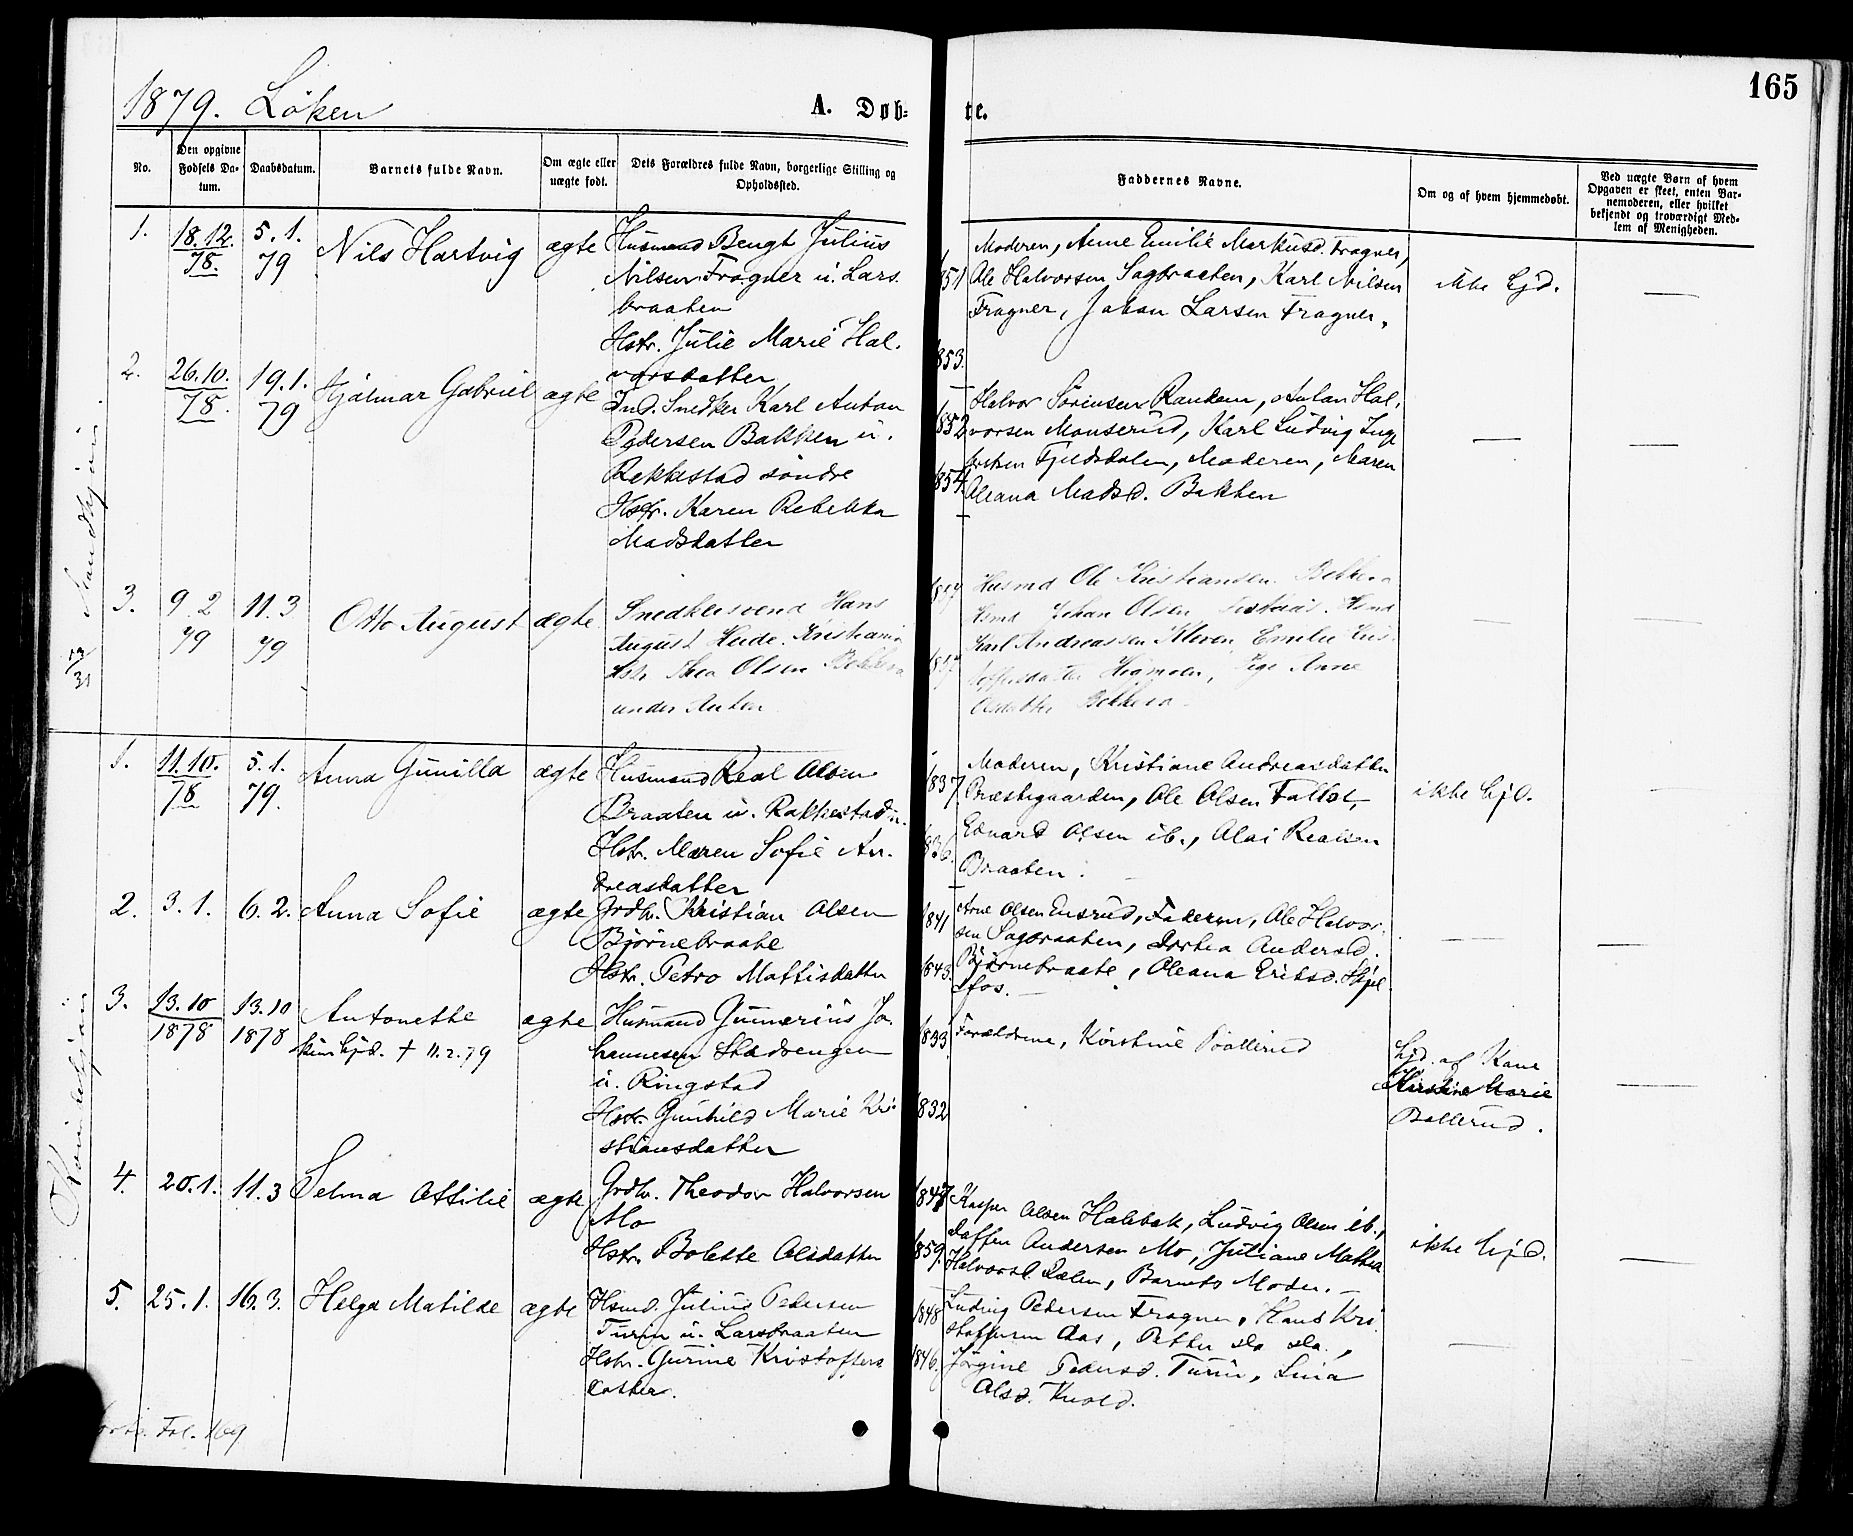 1879. Löken
A. Døb-
te.
165
No.
Den opgivne Fødsels Da-
tum.
Daabsdatum.
Barnets fulde Navn.
Om ægte eller
uægte født.
Dets Forældres fulde Navn, borgerlige Stilling og
Opholdssted.
Faddernes Navne.
Om og af hvem hjemmedøbt.
Ved uægte Børn af hvem
Opgaven er skeet, enten Bar-
nemoderen, eller hvilket
bekjendt og troværdigt Med-
lem af Menigheden.
Mandkjön
1. 18.12. 78. 5.1. 79 Nils Hartvig ægte
Husmand Bengt Julius
Nilsen Fragner u. Lars
braaten
Hstr. Julie Marie Hal.
vorsdatter
1851
1853.
Moderen, Anne Emilie Markusd. Fragner,
Ole Halvorsen Sagbraaten, Karl Nilsen
Fragner, Johan Larsen Fragner.
ikke hjd. —
2. 26.10. 78. 19.1. 79 Hjalmar Gabriel ægte
Ind. Snedker Karl Anton
Pedersen Bakken u.
Rekkestad söndre
Hstr. Karen Rebekka
Madsdatter
1852
1854
Halvor Sörensen Randem, Anton Hal.
vorsen Monserud, Karl Ludvig Inge
britsen Fjeldsdalen, Moderen, Maren
Oleana Madsd. Bakken
— —
3. 9 2 79 11.3 79 Otto August ægte
Snedkersvend Hans
August Heide. Kristiania
Hstr Thea Olsen
under
Husmd Ole Kristiansen
Hsmd Johan Olsen Hsmd
Karl Andreassen Kleven, Emilie Kris-
Pige Anne
Olsdatter
— —
13/31
Kvindekjön
1. 11.10. 78 5.1. 79. Anna Gunilla ægte
Husmand Real Olsen
Braaten u. Rakkestad n.
Hstr. Maren Sofie An.
dreasdatter
1837
1836.
Moderen, Kristiane Andreasdatter
Præstegaarden, Ole Olsen Fallet,
Edvard Olsen ib., Olai Realsen
Braaten.
ikke hjd. —
2. 3.1. 6.2. Anna Sofie ægte
Grdbr. Kristian Olsen
Björnebraate
Hstr. Petro Mattisdatter
1841
1843.
Arne Olsen Ensrud, Faderen, Ole Halvor.
sen Sagbraaten, Dorthea Andersd.
Björnebraate, Oleana Eriksd. Skjel
fos. —
— —
3. 13.10 1878 13.10 1878 Antonette ægte
hjd. † 11.2.79
Husmand Gunnerius Jo.
hannesen Stadvengen
u. Ringstad
Hstr. Gunhild Marie Kri-
stiansdatter
1833
1832
Forældrene, Kirstine Böllerud
hjd. af Kone
Kirstine Marie
Böllerud.
—
4. 20.1. 11.3 Selma Ottilie ægte
Grdbr. Theodor Halvorsen
Mo
Hstr. Bolette Olsdatter
1847
1859.
Kasper Olsen Holebek, Ludvig Olsen ib.,
Staffen Andersen Mo, Juliane Mathea
Halvorsd. Dalen, Barnets Moder. —
ikke hjd. —
5. 25.1. 16.3. Helga Matilde ægte
Hsmd. Julius Pedersen
Turin u. Larsbraaten
Hstr. Gurine Kristoffers
datter.
1848
1846.
Ludvig Pedersen Fragner, Hans Kri
stoffersen Aas, Petter do do.,
Jörgine Pedersd. Turin, Lina
Olsd. Kvold.
— —
Fol. 169